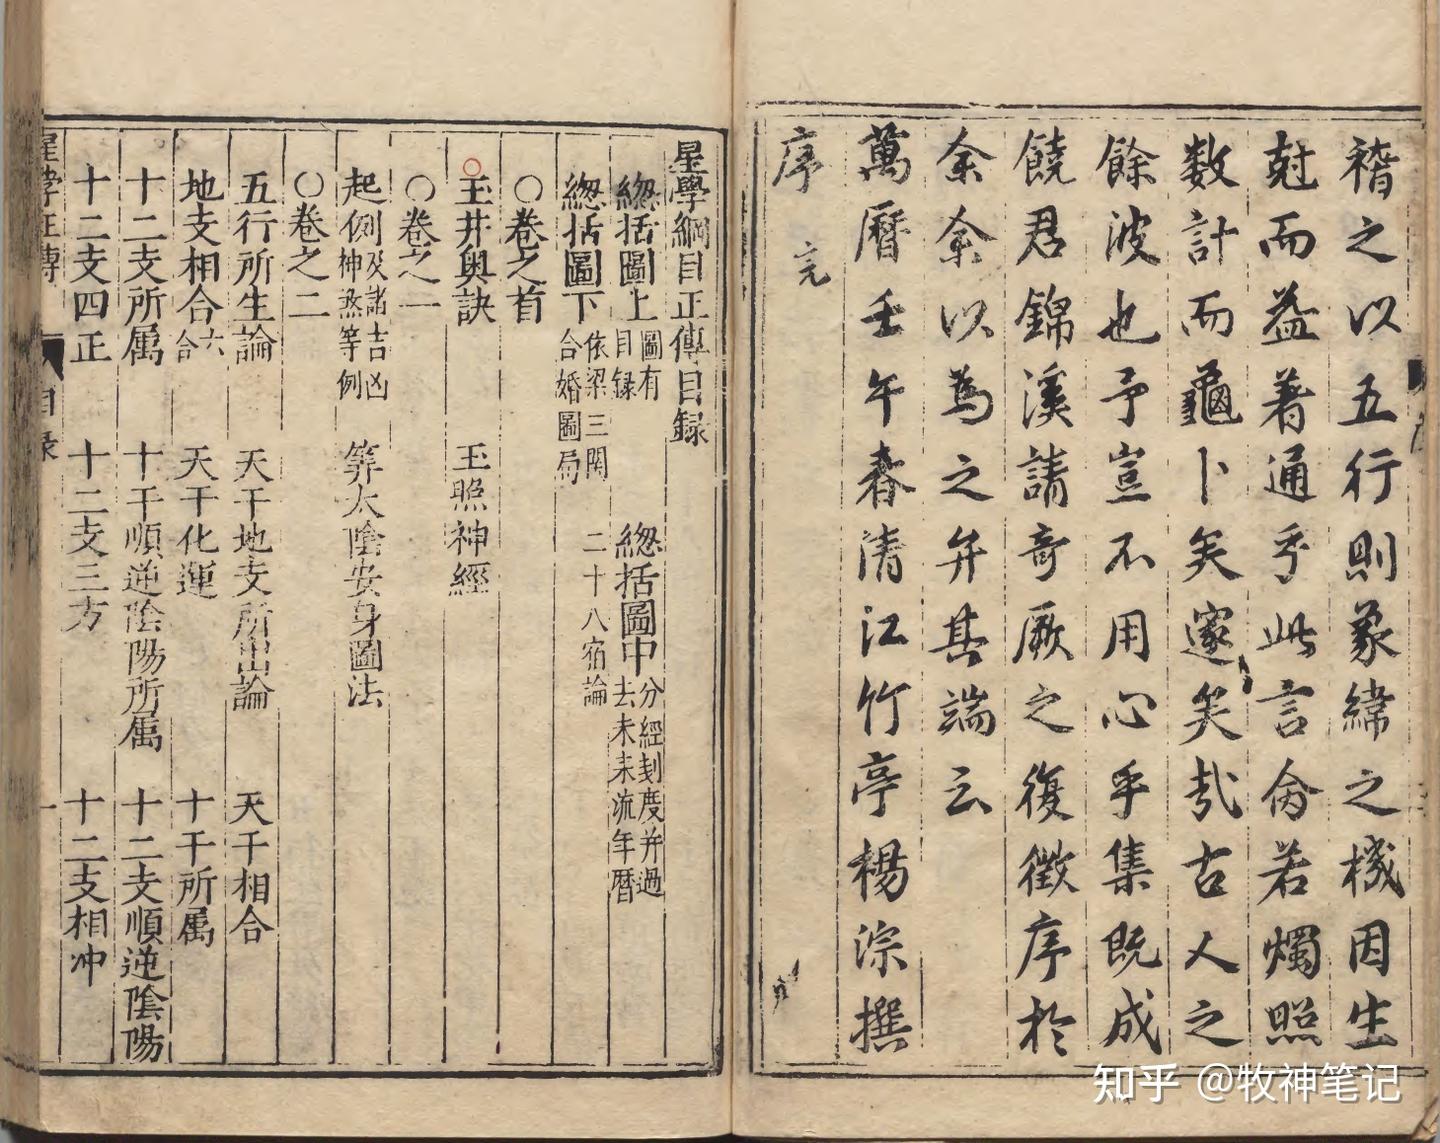 稽之以五行則彖緯之機因生
尅而益著通乎此言禽若燭照
数計而龜卜矣邃矣㢤古人之
餘波也予豈不用心乎集既成
饒君錦溪請竒厥之復徵序於
余余以為之弁其端云
萬曆壬午春清江竹亭楊淙撰
序完
星學綱目正傳目録
緫括圖上 圖有目録 緫括圖中 分經刻度并過去未来流年暦
緫括圖下 依梁三閑合婚圖局 二十八宿論
○卷之首
玉井奥訣 玉照神經
○卷之一
起例 及諸吉凶神煞等例 筭太陰安身圖法
○卷之二
五行所生論 天干地支所出論 天干相合
地支相合 六合 天干化運 十干所属
十二支所属 十干順逆陰陽所属 十二支順逆陰陽
十二支四正 十二支三方 十二支相冲
星學正傳 目録 一
知乎 @牧神笔记